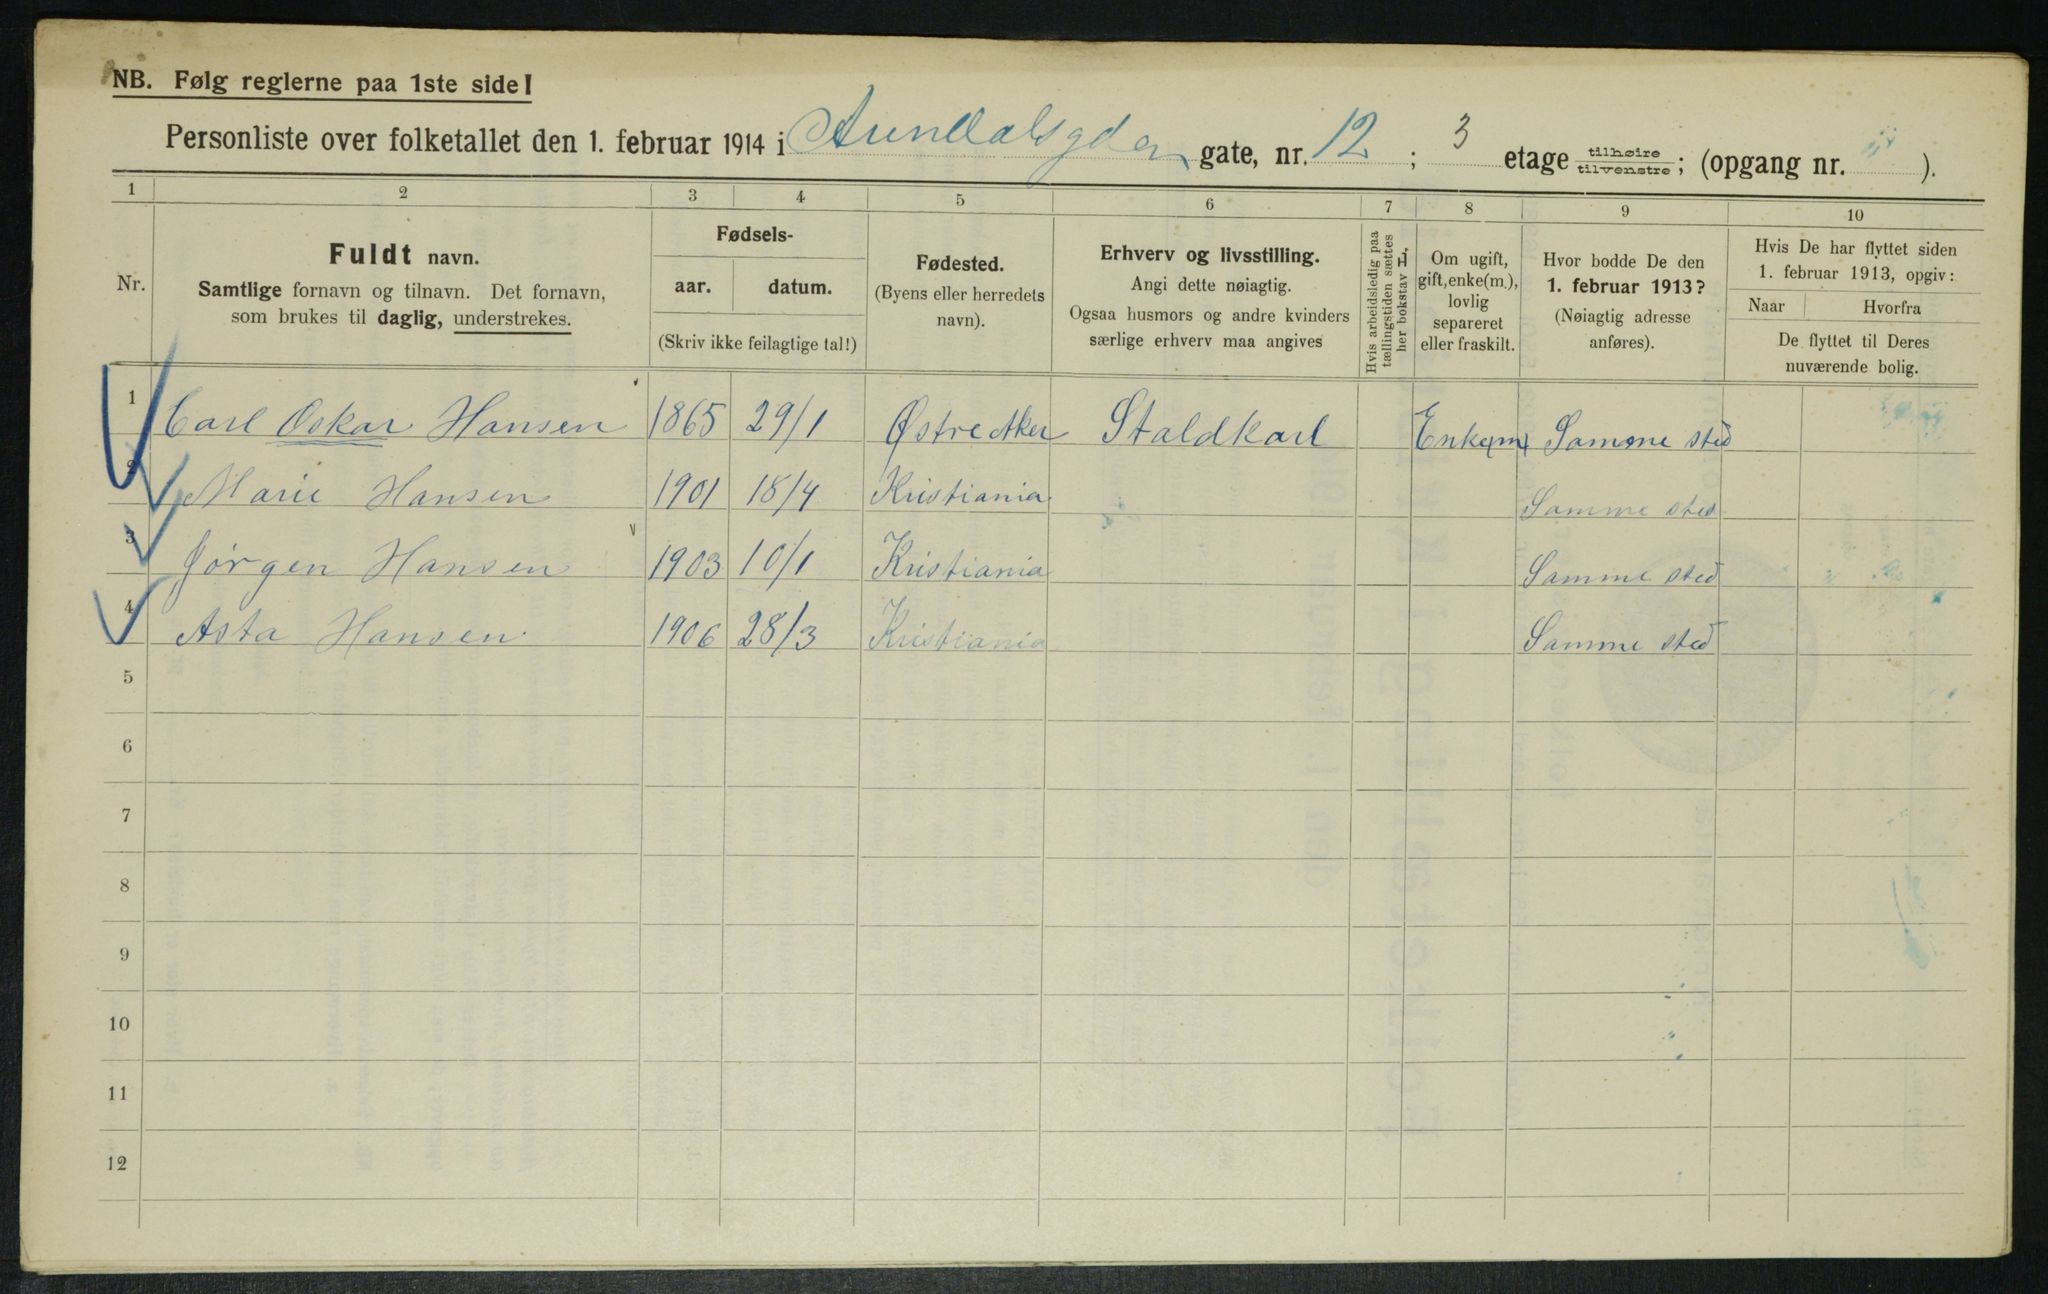 NB. Følg reglerne paa 1ste side!
Personliste over folketallet den 1. februar 1914 i Arendalsgden gate, nr. 12 ; 3 etage tilhøire tilvenstre ; (opgang nr. ).
1 2 3 4 5 6 7 8 9 10
Nr.
Fuldt navn.
Samtlige fornavn og tilnavn. Det fornavn,
som brukes til daglig, understrekes.
Fødsels-
aar. datum.
(Skriv ikke feilagtige tal!)
Fødested.
(Byens eller herredets
navn).
Erhverv og livsstilling.
Angi dette nøiagtig.
Ogsaa husmors og andre kvinders
særlige erhverv maa angives
Hvis arbeidsledig paa
tællingstiden sættes
her bokstav L,
Om ugift,
gift, enke(m.),
lovlig
separeret
eller fraskilt.
Hvor bodde De den
1. februar 1913?
(Nøiagtig adresse
anføres).
Hvis De har flyttet siden
1. februar 1913, opgiv:
Naar Hvorfra
De flyttet til Deres
nuværende bolig.
1 Carl Oskar Hansen 1865 29/1 Østre Aker Staldkarl Enke(m) Samme sted
2 Marie Hansen 1901 18/4 Kristiania Samme sted
3 Jørgen Hansen 1903 10/1 Kristiania Samme sted
4 Asta Hansen 1906 28/3 Kristiania Samme sted
5
6
7
8
9
10
11
12